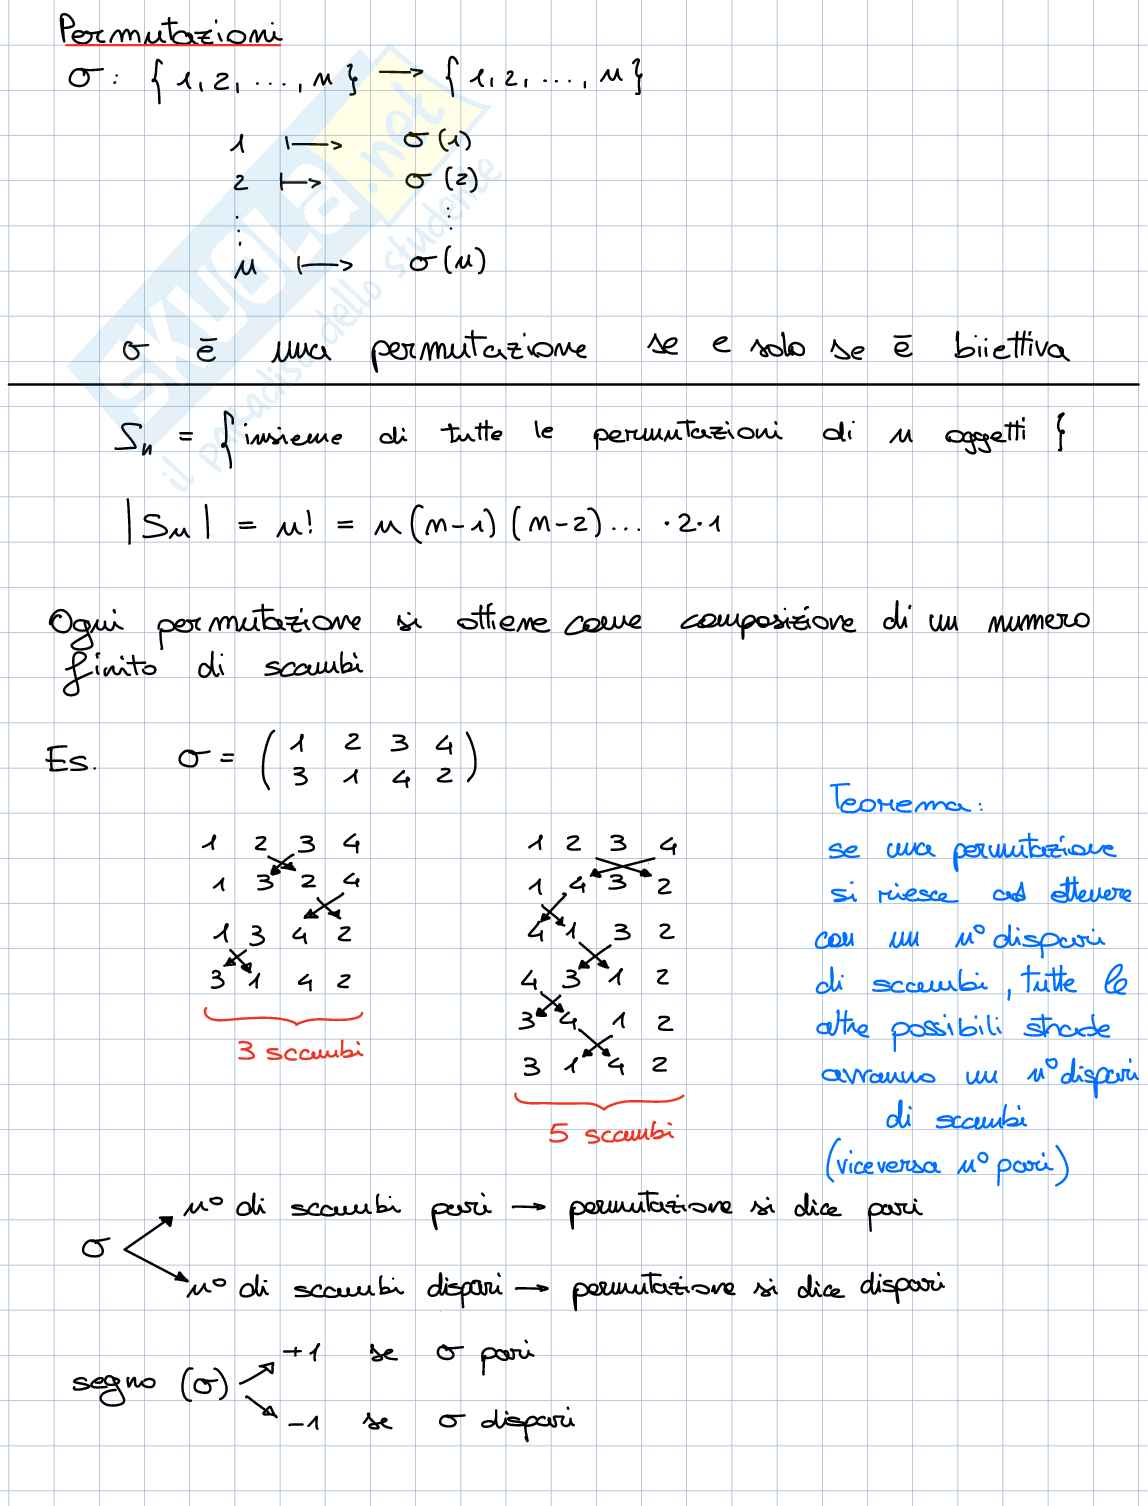 Permutazioni
σ : { 1, 2, ..., n } → { 1, 2, ..., n }
1 ⟼ σ(1)
2 ⟼ σ(2)
⋮ ⋮
n ⟼ σ(n)
σ ē una permutazione se e solo se ē biiettiva
Sn = { insieme di tutte le permutazioni di n oggetti }
|Sn| = n! = n(n-1)(n-2)... ·2·1
Ogni permutazione si ottiene come composizione di un numero
finito di scambi
Es. σ = ( 1 2 3 4
3 1 4 2 )
1 2 3 4
1 3 2 4
1 3 4 2
3 1 4 2
3 scambi
1 2 3 4
1 4 3 2
4 1 3 2
4 3 1 2
3 4 1 2
3 1 4 2
5 scambi
Teorema:
se una permutazione
si riesce ad ottenere
con un n° dispari
di scambi, tutte le
altre possibili strade
avranno un n° dispari
di scambi
(viceversa n° pari)
σ
n° di scambi pari → permutazione si dice pari
n° di scambi dispari → permutazione si dice dispari
segno (σ)
+1 se σ pari
-1 se σ dispari
SKUOLA.net
il paradiso dello studente